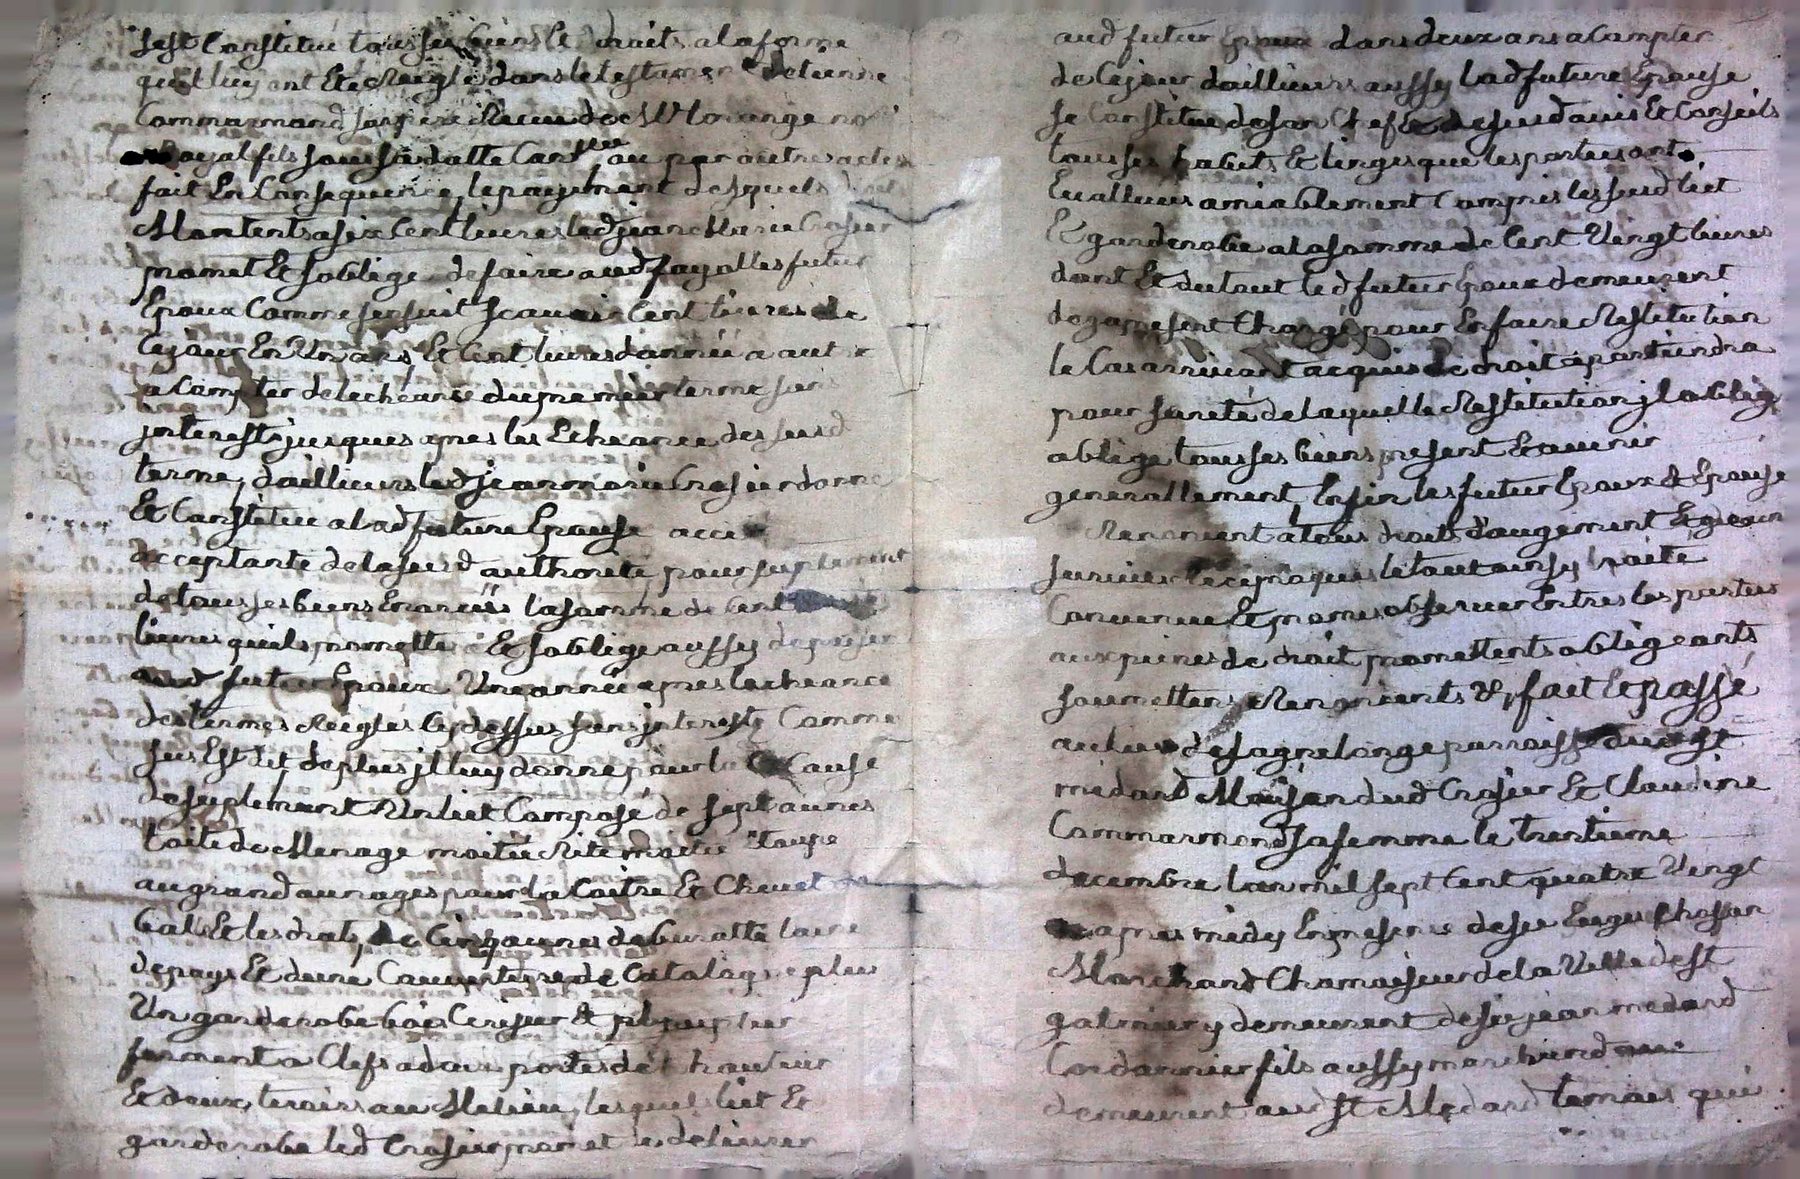 sest Constitue tous ses biens Et droits a la forme
qu'il luy ont Eté Reiglé dans le testament detienne
Commarmond son pere Recue de Me morange no
Royal fils sous sa datte Con ou par autres actes
fait En Consequence, le payement desquels droits
Montents a six Cent livres led jean Marie Crosier
promet Et soblige de faire aud fayolles futur
Epoux Comme sensuit scavoir Cent livres de
Ce jour En Un ans, Et Cent livres dannée a autre
a Compter de lecheance du premier terme sans
jnterests jusques apres les Echeance des susd
terme, dailleurs led jean marie Crosier donne
Et Constitue a lad future Epouse
acceptante de la susd authorité pour suplement
de tous ses biens la somme de Cent
livres quils promette Et soblige aussy de payer
aud futur Epoux Une année apres lecheance
des termes Reiglés Cy dessus sans jnterests Comme
sus Est dit de plus jl luy donne pour la Cause
de suplement Un liet Composé de sept aunes
toile de Menage moitié Rite moitié Etoupe
au grand aunages pour la Coitre Et Chevet
Et les drats, de Cinq aunes de buratte laine
de pays Et dune Couverture de Catalogne plus
Un garderobe bois Cerisier & peuplier
ferment a Clefs a deux portes de hauteur
Et deux tiroirs au Melieu, lesquels liet Et
garderobe led Crosier promet de delivrer
aud futur Epoux dans deux ans a Compter
de Ce jour dailleurs aussy lad future Epouse
se Constitue de son Chef Et de susd avis Et Conseils
tous ses habits Et linges que les parties ont
Evalluers amiablement Compris les susd liet
Et garderobe a la somme de Cent Vingt livres
dont Et du tout led futur Epoux demeurent
des a present Chargé pour En faire Restitution
le Cas arrivant a qui de droit apartiendra
pour sureté de laquelle Restitution jl oblige
oblige tous ses biens present Et avenir
generallement Enfin les futur Epoux & Epouse
Renoncent a tous droits daugement Et de gain
survie Reciproques le tout ainsy traité
Convenue Et promis observer Entres les parties
aux peines de droit promettents obligeants
soumettens Renoncents & fait Et passé
au lieu de sagnelonge parroisse dud st
médard Maison dud Crosier Et Claudine
Commarmond sa femme le trentieme
decembre lan mil sept Cent quatre Vingt
apres midy En presence de sr
Marchand Chamoiseur de la Ville de st
galmier y demeurent de sr jean medard
Cordonnier fils aussy marchand
demeurent aud st Medard temoins qui